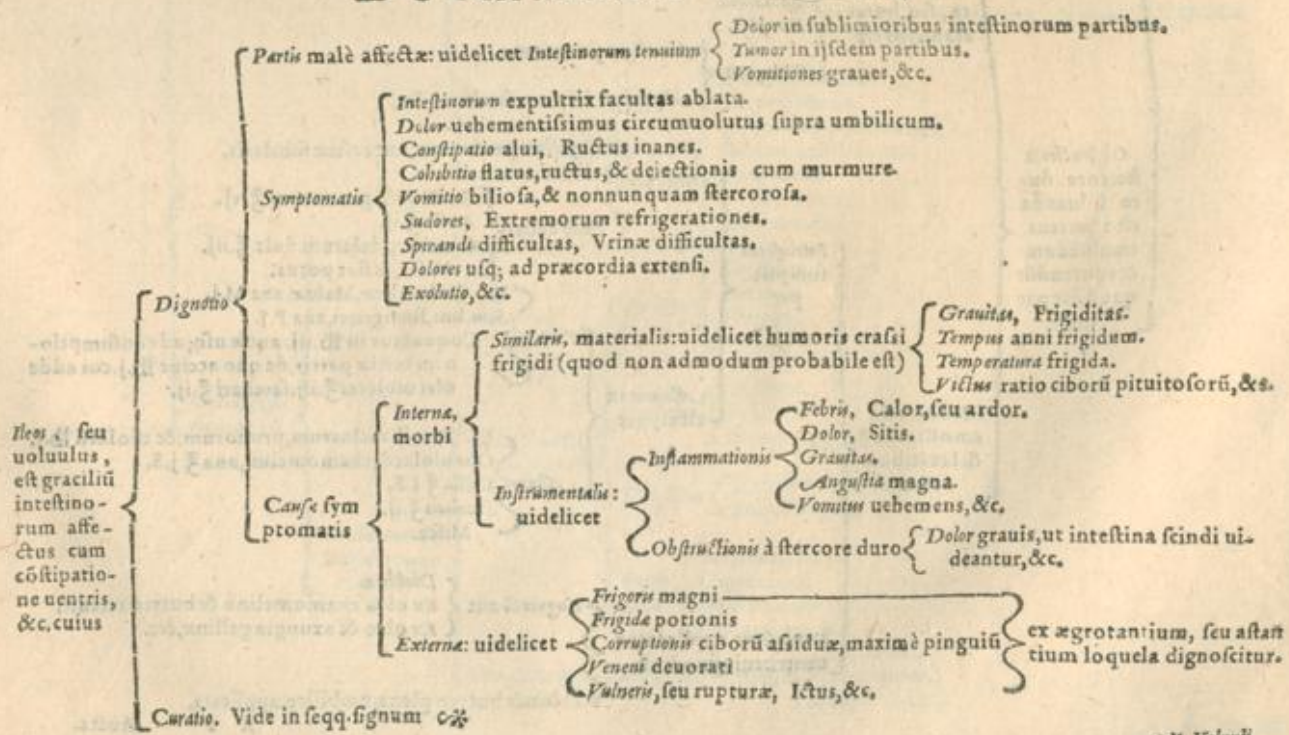 Partis malè affectæ: uidelicet Inteſtinorum tenuium
Dolor in ſublimioribus inteſtinorum partibus.
Tumor in ijſdem partibus.
Vomitiones graues, &c.
Symptomatis
Inteſtinorum expultrix facultas ablata.
Dolor uehementiſsimus circumuolutus ſupra umbilicum.
Conſtipatio alui, Ructus inanes.
Cohibitio flatus, ructus, & deiectionis cum murmure.
Vomitio bilioſa, & nonnunquam ſtercoroſa.
Sudores, Extremorum refrigerationes.
Spirandi difficultas, Vrinæ difficultas.
Dolores uſq; ad præcordia extenſi.
Exolutio, &c.
Dignotio
Cauſæ ſym
ptomatis
Internæ,
morbi
Similaris, materialis: uidelicet humoris craſsi
frigidi (quod non admodum probabile eſt)
Grauitas, Frigiditas.
Tempus anni frigidum.
Temperatura frigida.
Victus ratio ciborũ pituitoſorũ, &c.
Inſtrumentalis:
uidelicet
Inflammationis
Febris, Calor, ſeu ardor.
Dolor, Sitis.
Grauitas.
Anguſtia magna.
Vomitus uehemens, &c.
Obſtructionis à ſtercore duro
Dolor grauis, ut inteſtina ſcindi ui-
deantur, &c.
Externæ: uidelicet
Frigoris magni
Frigidæ potionis
Corruptionis ciborũ aſsiduæ, maximè pinguiũ
Veneni deuorati
Vulneris, ſeu rupturæ, Ictus, &c.
ex ægrotantium, ſeu aſtan
tium loquela dignoſcitur.
Ileos ſeu
uoluulus,
eſt graciliũ
inteſtino-
rum affe-
ctus cum
cõſtipatio-
ne uentris,
&c. cuius
Curatio. Vide in ſeqq. ſignum